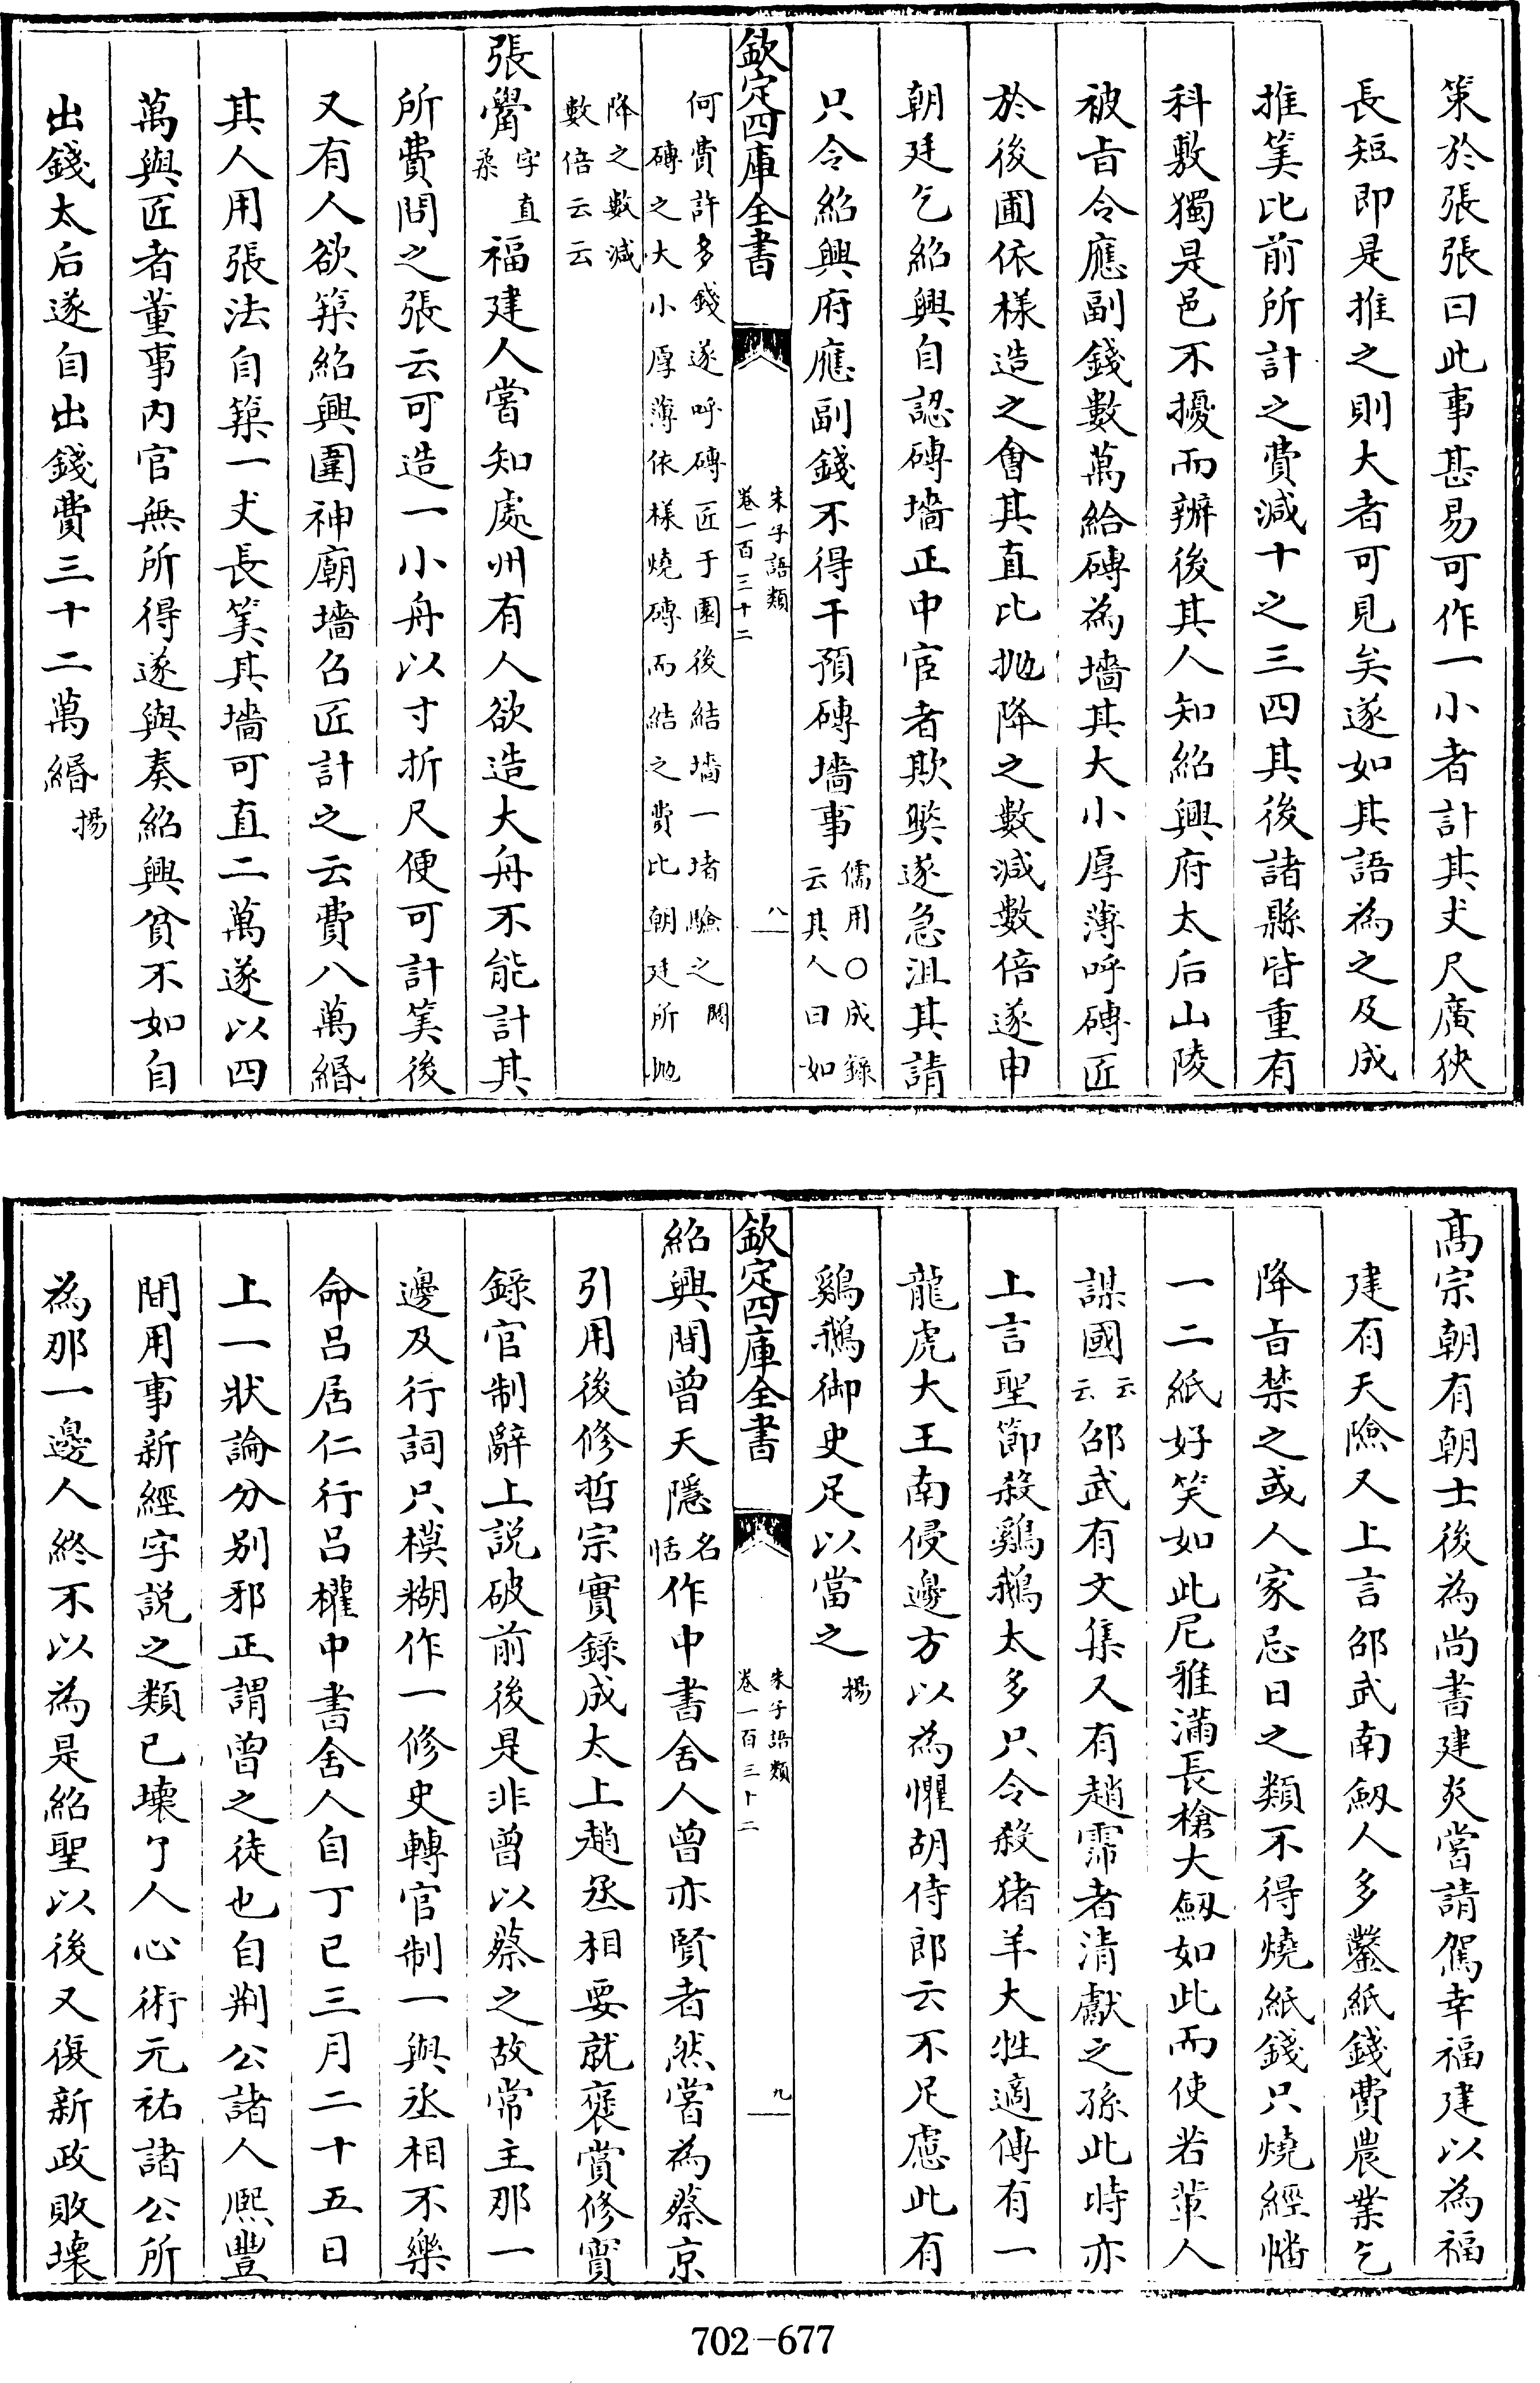 策於張張曰此事甚易可作一小者計其丈尺廣狹
長短即是推之則大者可見矣遂如其語為之及成
推筭比前所計之費減十之三四其後諸縣皆重有
科敷獨是邑不擾而辦後其人知紹興府太后山陵
被㫖令應副錢數萬給磚為墻其大小厚薄呼磚匠
於後圃依様造之㑹其直比抛降之數減數倍遂申
朝廷乞紹興自認磚墻正中官者欺弊遂急沮其請
只令紹興府應副錢不得干預磚墻事儒用○成録
云其人曰如
欽定四庫全書
朱子語類
卷一百三十二
八
何費許多錢遂呼磚匠于園後結墻一堵驗之闊
磚之大小厚薄依様燒磚而結之費比朝廷所抛
降之數減
數倍云云
張觷字直
柔福建人嘗知處州有人欲造大舟不能計其
所費問之張云可造一小舟以寸折尺便可計筭後
又有人欲築紹興圍神廟墻召匠計之云費八萬緡
其人用張法自築一丈長筭其墻可直二萬遂以四
萬與匠者董事内官無所得遂與奏紹興貧不如自
出錢太后遂自出錢費三十二萬緡揚
髙宗朝有朝士後為尚書建炎嘗請駕幸福建以為福
建有天險又上言邵武南劔人多鑿紙錢費農業乞
降㫖禁之或人家忌日之類不得燒紙錢只燒經幡
一二紙好笑如此尼雅滿長槍大劔如此而使若輩人
謀國云
云邵武有文集又有趙霈者清獻之孫此時亦
上言聖節殺鷄鵝太多只令殺猪羊大牲適傳有一
龍虎大王南侵邊方以為懼胡侍郎云不足慮此有
鷄鵝御史足以當之揚
欽定四庫全書
朱子語類
卷一百三十二
九
紹興間曾天隱名
恬作中書舍人曾亦賢者然嘗為蔡京
引用後修哲宗實錄成太上趙丞相要就褒賞修實
錄官制辭上説破前後是非曾以蔡之故常主那一
邊及行詞只模糊作一修史轉官制一與丞相不樂
命吕居仁行吕權中書舍人自丁已三月二十五日
上一狀論分别邪正謂曾之徒也自荆公諸人熙豐
間用事新經字説之類已壊了人心術元祐諸公所
為那一邊人終不以為是紹聖以後又復新政敗壊
702-677